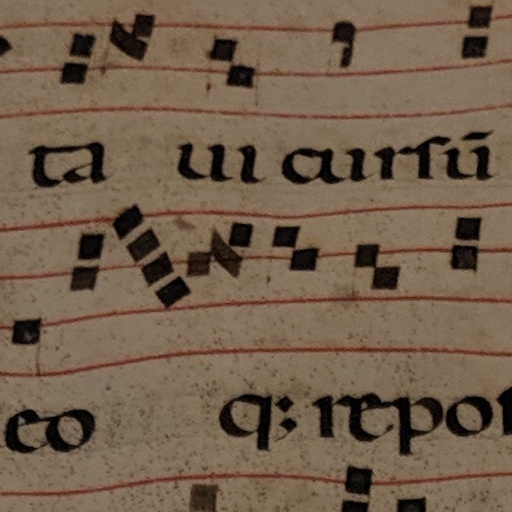 ta ui cursū
eo q; repos